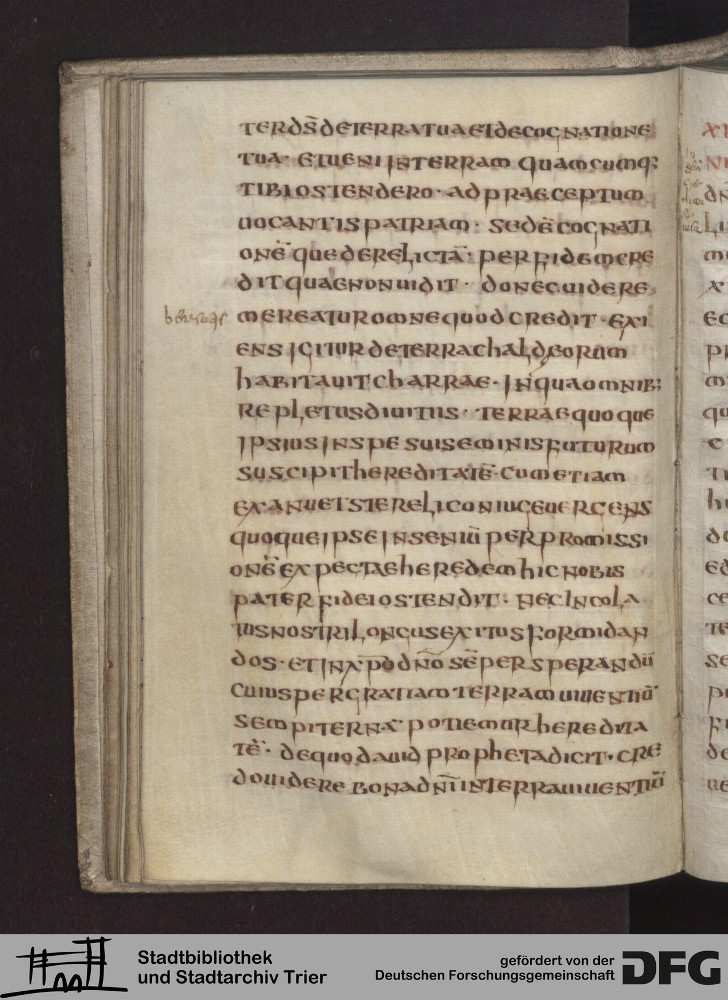 TER DS̄ DE TERRA TUA ET DE COGNATIONE
TUA· ET UENI IN TERRAM QUAMCUMQ;
TIBI OSTENDERO· AD PRAECEPTUM
UOCANTIS PATRIAM· SED ET COGNATI
ONĒ QUE DERELICTĀ· PER FIDEM CRE
DIT QUAE NON UIDIT· DONEC UIDERE
MEREATUR OMNE QUOD CREDIT· EXI
ENS IGITUR DE TERRA CHALDEORUM
HABITAUIT CHARRAE· IN QUA OMNIB;
REPLETUS DIUITIIS· TERRAE QUOQUE
IPSIUS IN SPE SUI SEMINIS FUTURUM
SUSCIPIT HEREDITATĒ· CUM ETIAM
EX ANU ET STERELI CONIUGE UERGENS
QUOQUE IPSE IN SENIŪ PER PROMISSI
ONĒ EXPECTAE HEREDEM HIC NOBIS
PATER FIDEI OSTENDIT· NEC INCOLA
TUS NOSTRI LONGUS EXITUS FORMIDAN
DOS· ET IN XP̄O DN̄O SĒPER SPERANDŪ
CUIUS PER GRATIAM TERRAM UIUENTIŪ
SEMPITERNA POTIEMUR HEREDITA
TĒ· DE QUO DAUID PROPHETA DICIT· CRE
DO UIDERE BONA DN̄I IN TERRA UIUENTIŪ
Stadtbibliothek
und Stadtarchiv Trier
gefördert von der
Deutschen Forschungsgemeinschaft
DFG